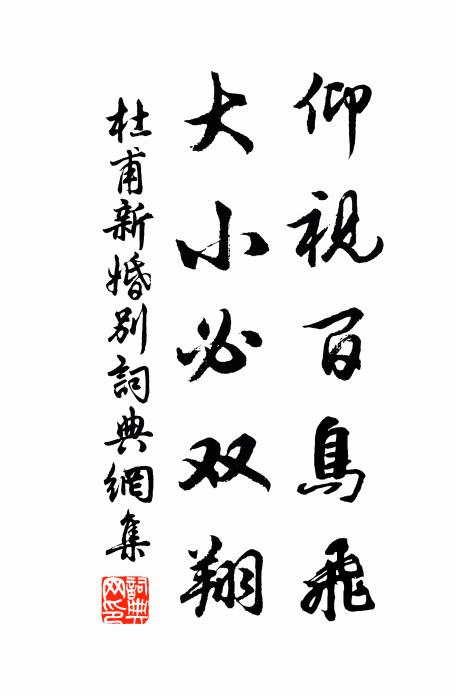 仰視百鳥飛
大小必双翔
杜甫新婚別詞典網集
詞典
网印